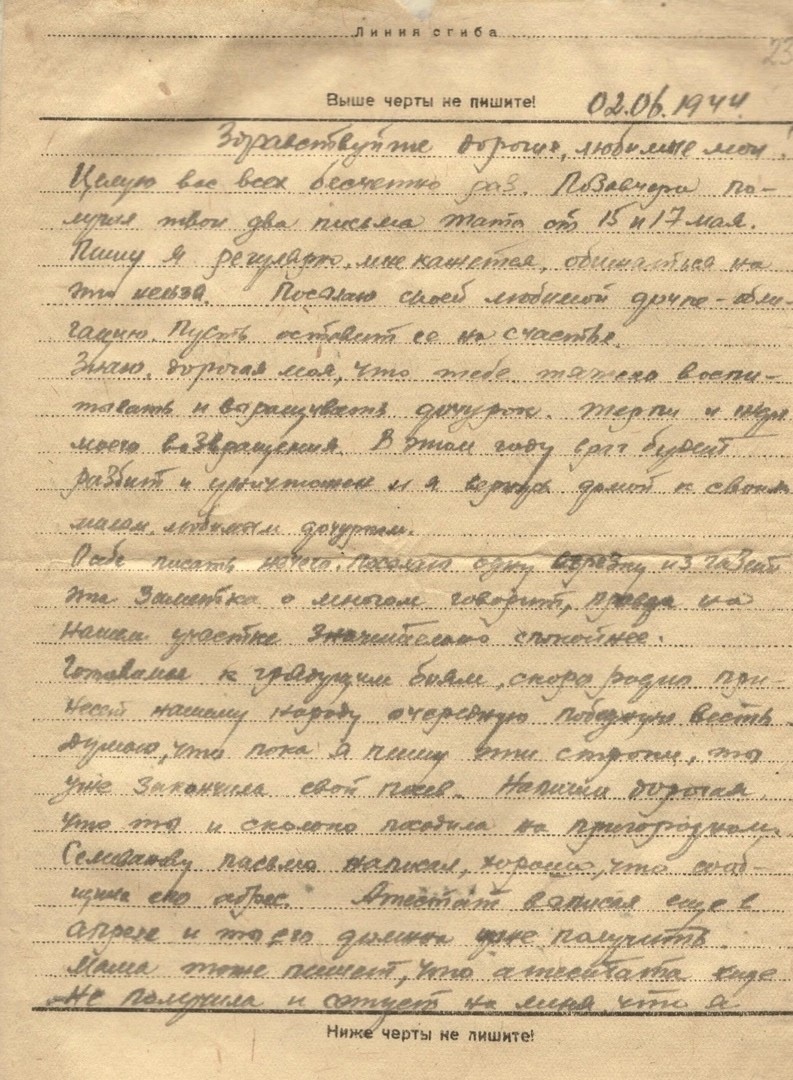 Линия сгиба
23
Выше черты не пишите! 02.06.1944
Здравствуйте дорогие, любимые мои!
Целую вас всех бесчетно раз. Позавчера по-
лучил твои два письма тата от 15 и 17 мая.
Пишу я регулярно, мне кажется, обижаться на
это нельзя. Посылаю своей любимой дочке - обли-
гацию. Пусть оставит ее на счастье.
Знаю, дорогая моя, что тебе тяжело воспи-
тывать и выращивать дочурок. Терпи и жди
моего возвращения. В этом году враг будет
разбит и уничтожен и я вернусь домой к своим
милым, любимым дочуркам.
О себе писать нечего. Посылаю одну вырезку из газет
эта заметка о многом говорит, правда на
нашем участке значительно спокойнее.
Готовимся к грядущим боям, скоро радио при-
несет нашему народу очередную победную весть.
Думаю, что пока я пишу эти строки, ты
уже закончила свой посев. Напиши дорогая
что ты и сколько посадила на пригородном.
Селиванову письмо написал, хорошо, что сооб-
щила его адрес. Аттестат выписал еще в
апреле и ты его должна уже получить.
Маша тоже пишет, что аттестата еще
не получила и сетует на меня что я
Ниже черты не пишите!